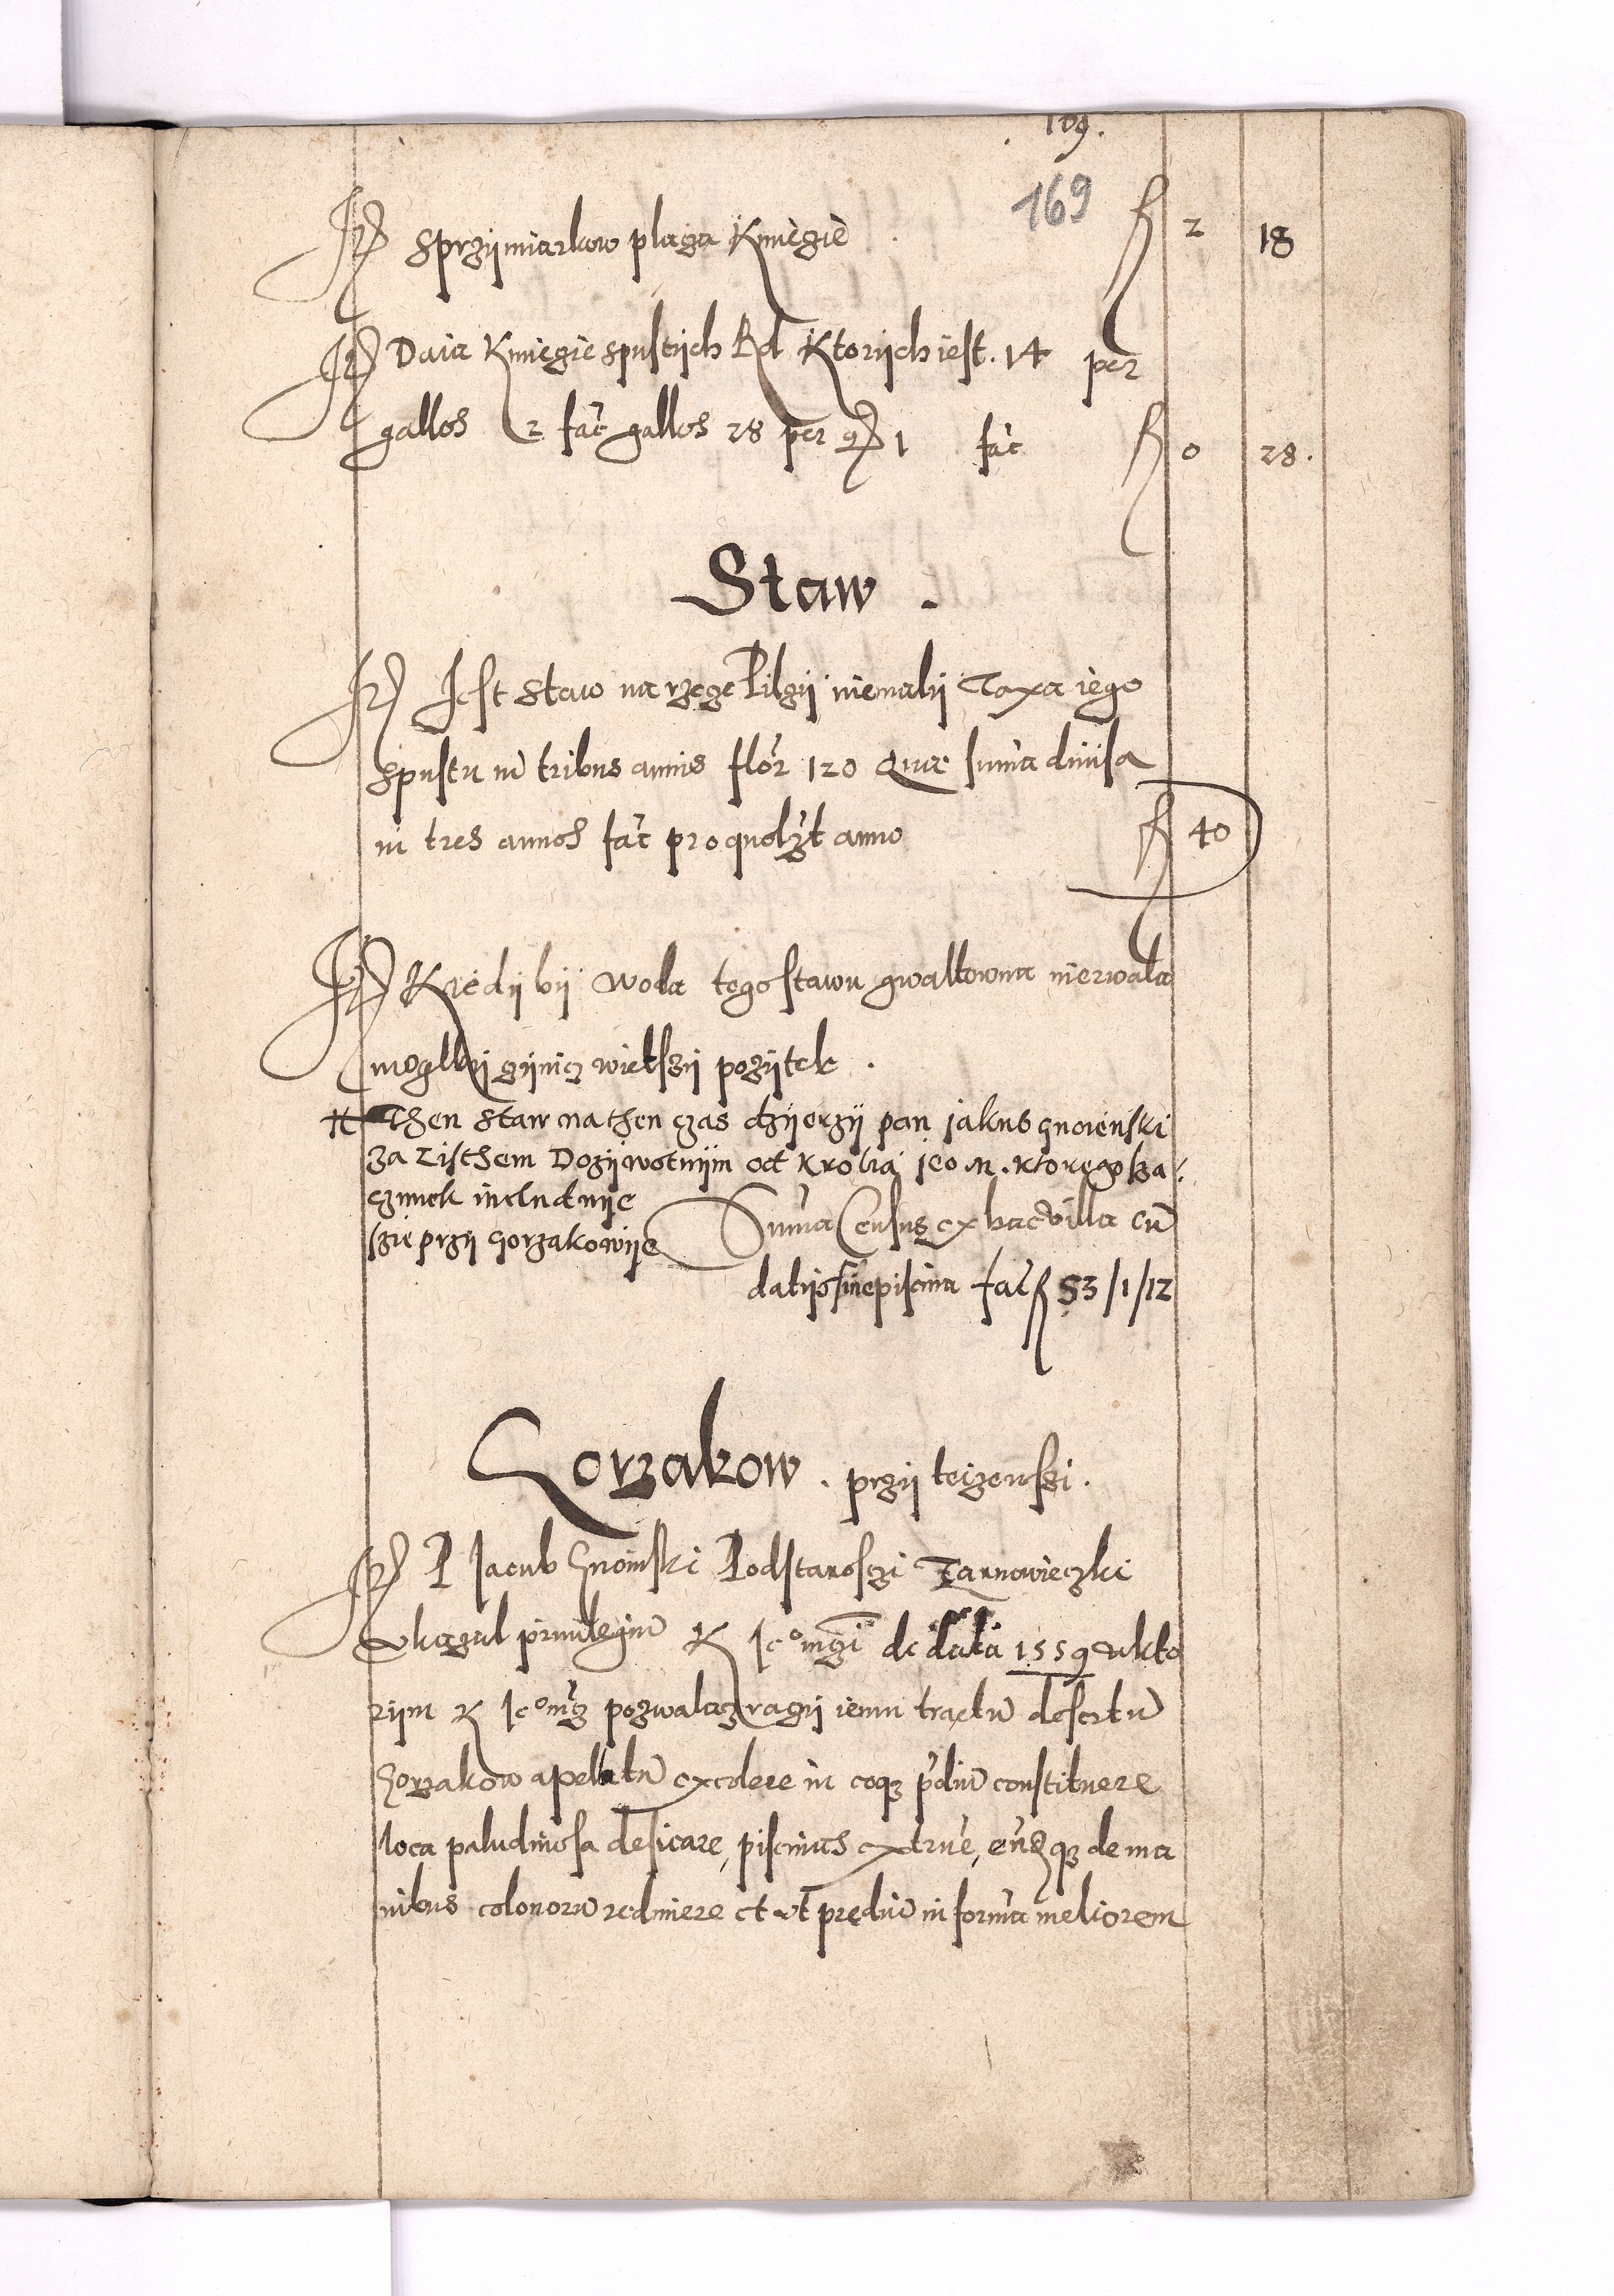 169.
169
It sprzÿmiarkow placza Kmieczie fl 2 18
It Daia Kmiecie spustÿch Rol Ktorÿch iest. 14 per
gallos 2 fac̃ gallos 28 per gr 1 fac̃ fl 0 28.
Staw.
It Jest staw na rzece Pilczÿ niemalÿ Taxa iego
spustu in tribus annis flor̃ 120 Quæ summa diuisa
in tres annos fac̃ pro quolz̃t anno fl 40
It Kiedÿ bÿ woda tego stawu gwaltowna nierwala
moglbÿ czÿnicz wietszÿ pozÿtek.
Then staw na then czas dzÿerzÿ pan jakub gnoienski
za listhem Dozÿwotnÿm od Krolia jeo M. ktorego sza:
czunek includuÿe
szie przÿ gorzakowÿe
Sum̃a Census ex hac villa cũ
datÿs sine piscina fac̃ fl 53/1/12
Gorzakow. przÿ
It P Jacub Gnoinski Podstarosczi Tarnowieczki
Vkazal priuilegiũ K Ieo mczi de data 1559 w kto
rÿm K Ieo mcz pozwalacz raczÿ iemu tractũ desertũ
Gorzakow apellatũ excolere in eoqz p̃diũ constituere
loca paludinosa desicare, piscinas extrue, eũdqz de ma
nibus colonorũ redimere et vt prediũ in form̃a meliorem